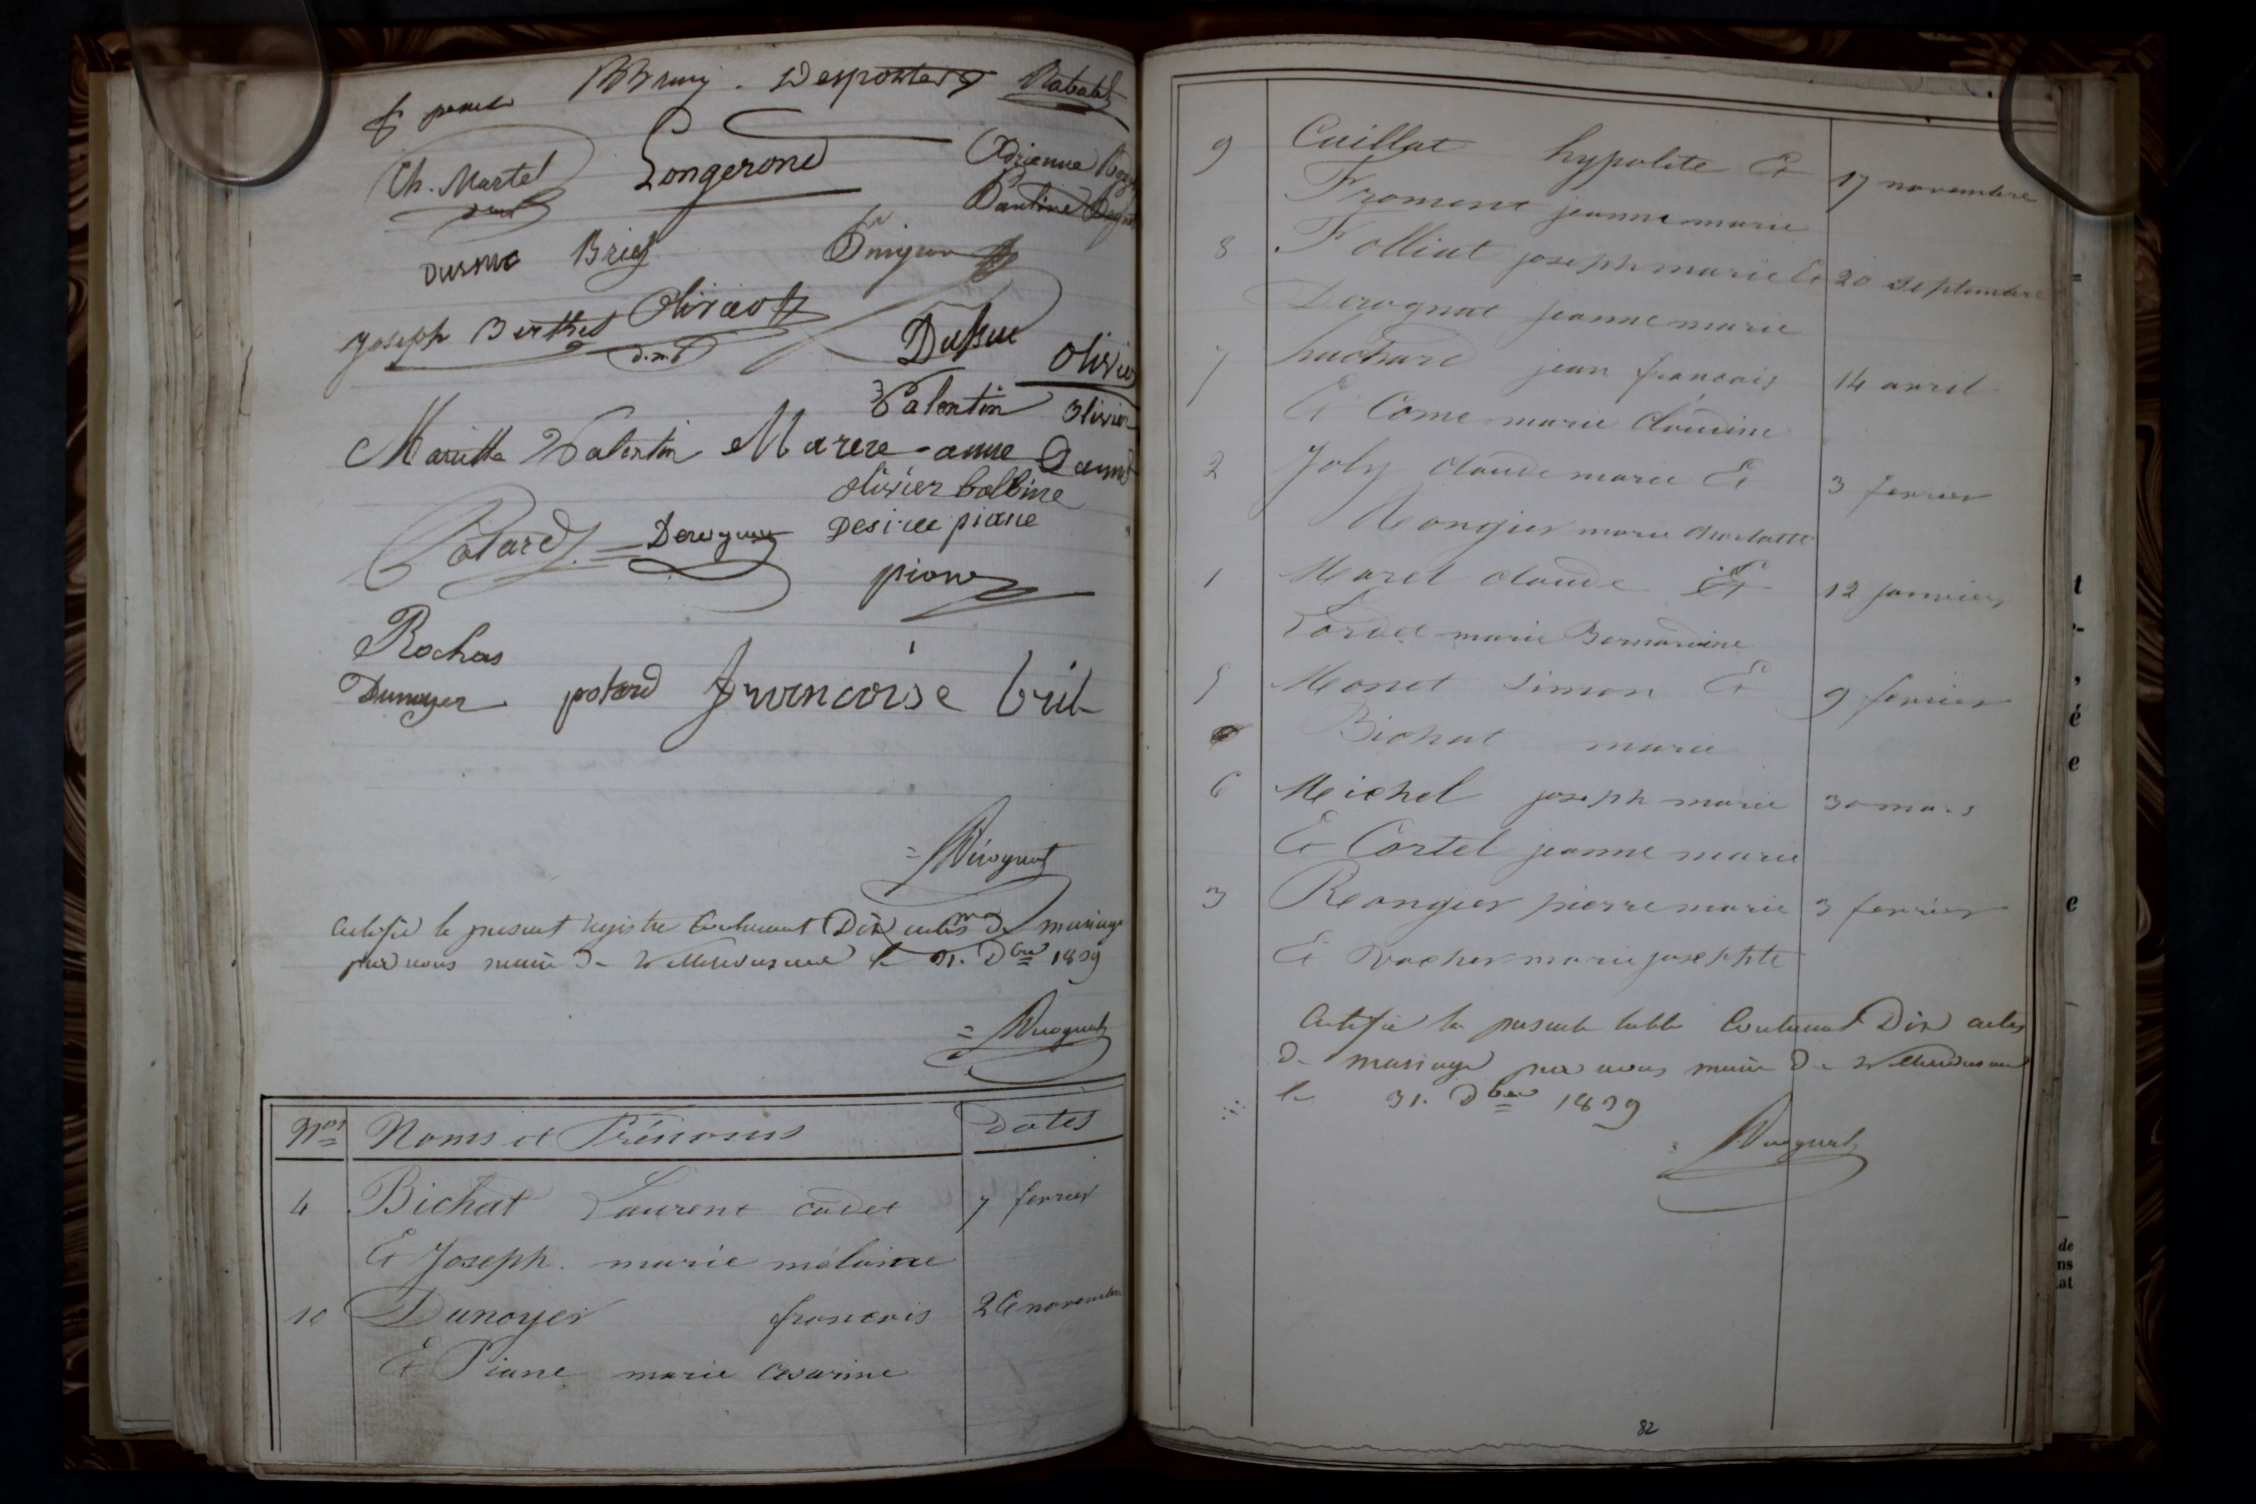 BBruny. Desportes Rabatel
Ch. Martel Longerond Adrienne
dmt Pauline
Brief
Joseph Berthet Olivier
d.m.t Dupuc Olivier
Valentin Olivier
Mariette Valentin Marie-anne
olivier balbine
Potard Derognat Desirée piane
piane
Rochas
Dunoyer potard francoise bril
= Derognat
Certifié le présent registre Contenant Dix actes de mariage
par nous maire de Villereversure le 31. Dbre 1839
= Derognat
Nos Noms et Prénoms Dates
4 Bichat Laurent cadet 7 fevrier
Et Joseph. marie mélanie
10 Dunoyer francois 26 novembre
Et Piane marie Cesarine
9 Cuillat hypolite Et 17 novembre
Froment jeanne marie
8 Folliat joseph marie Et 20 septembre
Derognat jeanne marie
7 huchard jean francois 14 avril
Et Come marie Claudine
2 Joly claude marie Et 3 fevrier
Reongier marie charlotte
1 Morel claude Et 12 janvier
marie Bernardine
5 Monet simon Et 9 fevrier
Bichat marie
6 Michel joseph marie 30 mars
Et Cortel jeanne marie
3 Reongier pierre marie 3 fevrier
Et Vacher marie josephte
Certifié la présente table Contenant Dix actes
de mariage par nous maire de Villereversure
le 31. Dbre 1839
= Derognat
82